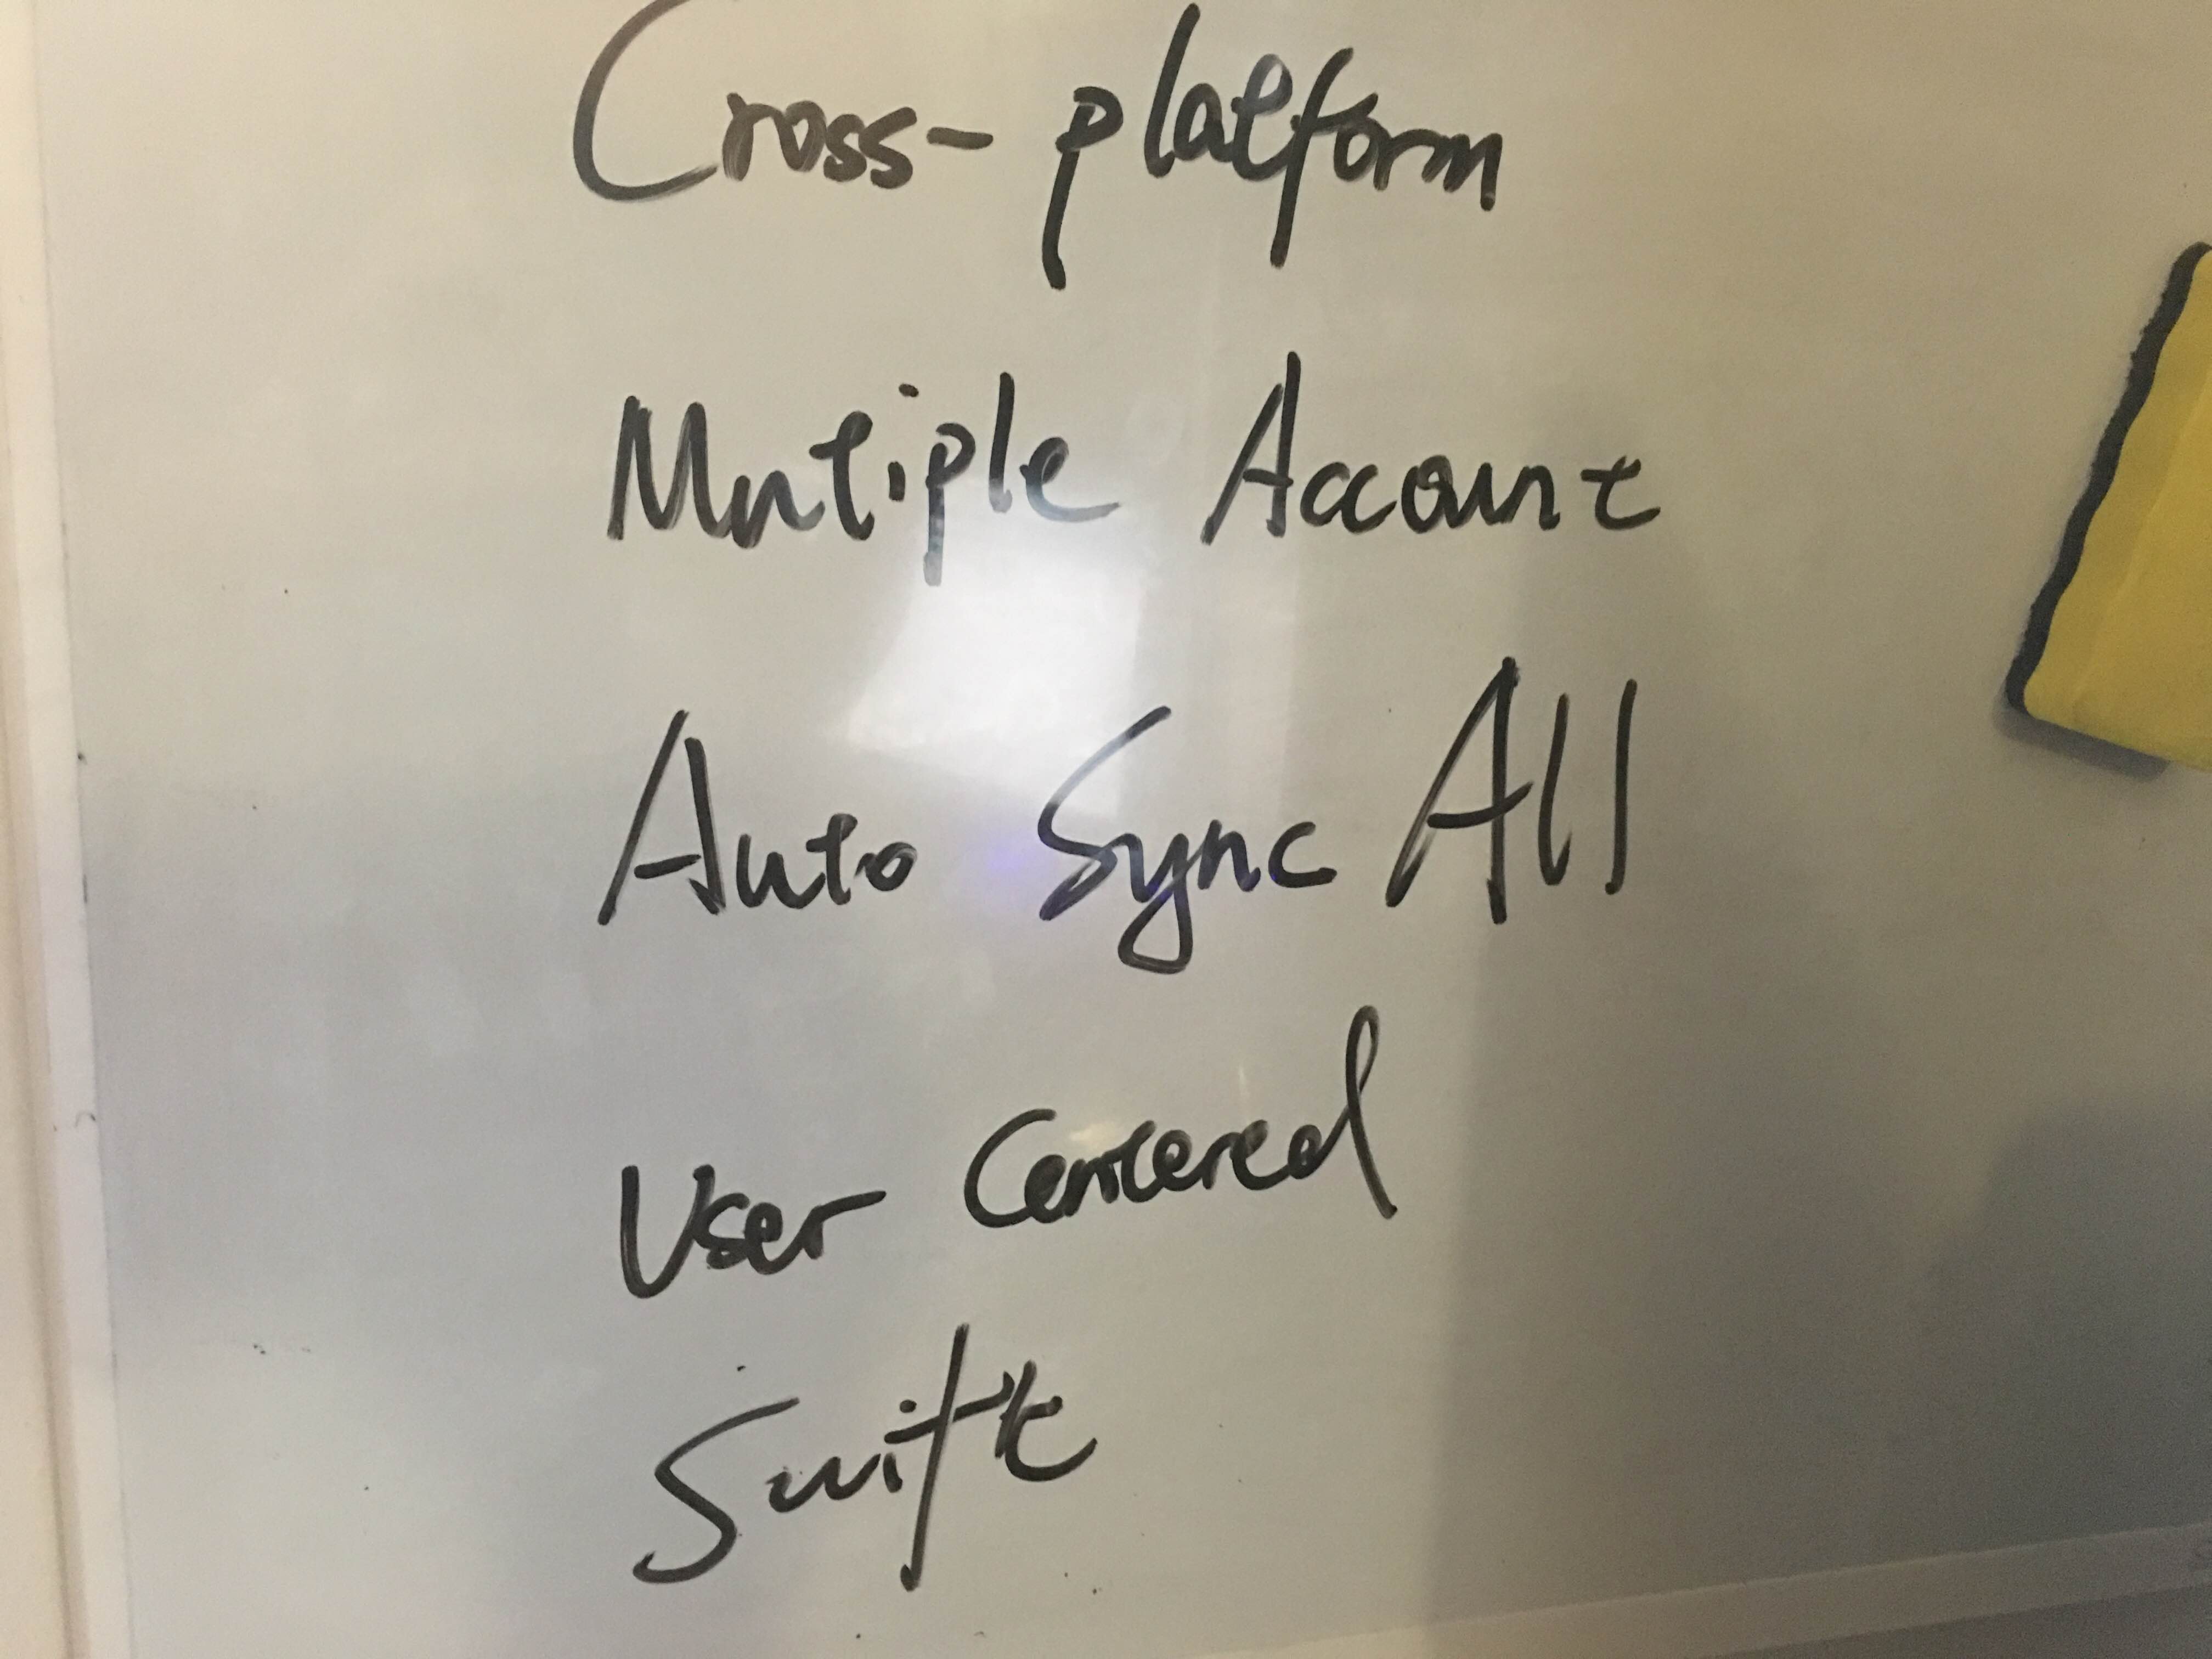 Cross-platform
Mutiple Account
Auto Sync All
User Centered
Swift